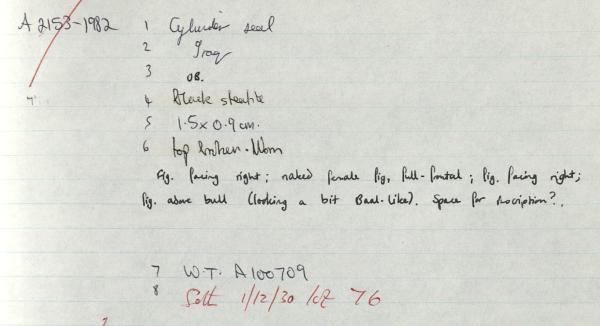 A 2153-1982 1 Cylinder seal
2 Iraq
3 OB.
4 Black steatite
5 1.5 x 0.9 cm.
6 top broken. Worn
Fig. facing right; naked female fig, full-frontal; fig. facing right;
fig. above bull (looking a bit Baal-like). Space for inscription?.
7 W.T. A100709
8 Soth 1/12/30 lot 76